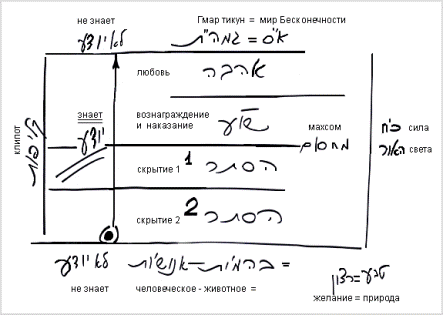 не знает
Гмар тикун = мир Бесконечности
לא יודע
א"ס = גמה"ת
любовь
אהבה
знает
יודע
вознаграждение
и наказание
махсом
מחסום
כ"ח сила
האור света
клипот
קליפות
скрытие 1
1 הסתר
скрытие 2
2 הסתר
לא יודע
בהמ'ות – אנוש'ות =
не знает
человеческое - животное =
טבע=רצון
желание = природа